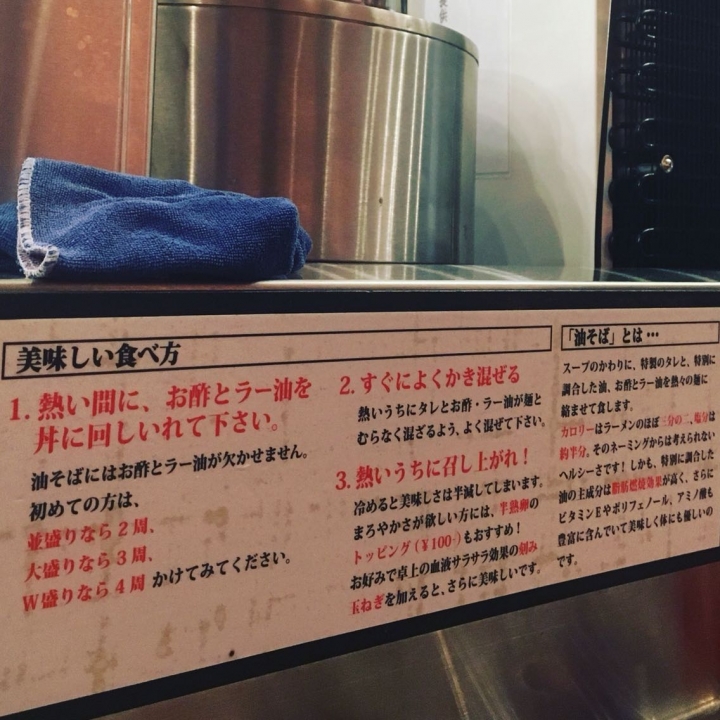 美味しい食べ方
1. 熱い間に、お酢とラー油を
丼に回しいれて下さい。
油そばにはお酢とラー油が欠かせません。
初めての方は、
並盛りなら2周、
大盛りなら3周、
W盛りなら4周 かけてみてください。
2. すぐによくかき混ぜる
熱いうちにタレとお酢・ラー油が麺と
むらなく混ざるよう、よく混ぜて下さい。
3. 熱いうちに召し上がれ!
冷めると美味しさは半減してしまいます。
まろやかさが欲しい方には、半熟卵の
トッピング(¥100-)もおすすめ!
お好みで卓上の血液サラサラ効果の刻み
玉ねぎを加えると、さらに美味しいです。
「油そば」とは…
スープのかわりに、特製のタレと、特別に
調合した油、お酢とラー油を熱々の麺に
絡ませて食します。
カロリーはラーメンのほぼ三分の二、塩分は
約半分。そのネーミングからは考えられない
ヘルシーさです!しかも、特別に調合した
油の主成分は脂肪燃焼効果が高く、さらに
ビタミンEやポリフェノール、アミノ酸も
豊富に含んでいて美味しく体にも優しいの
です。